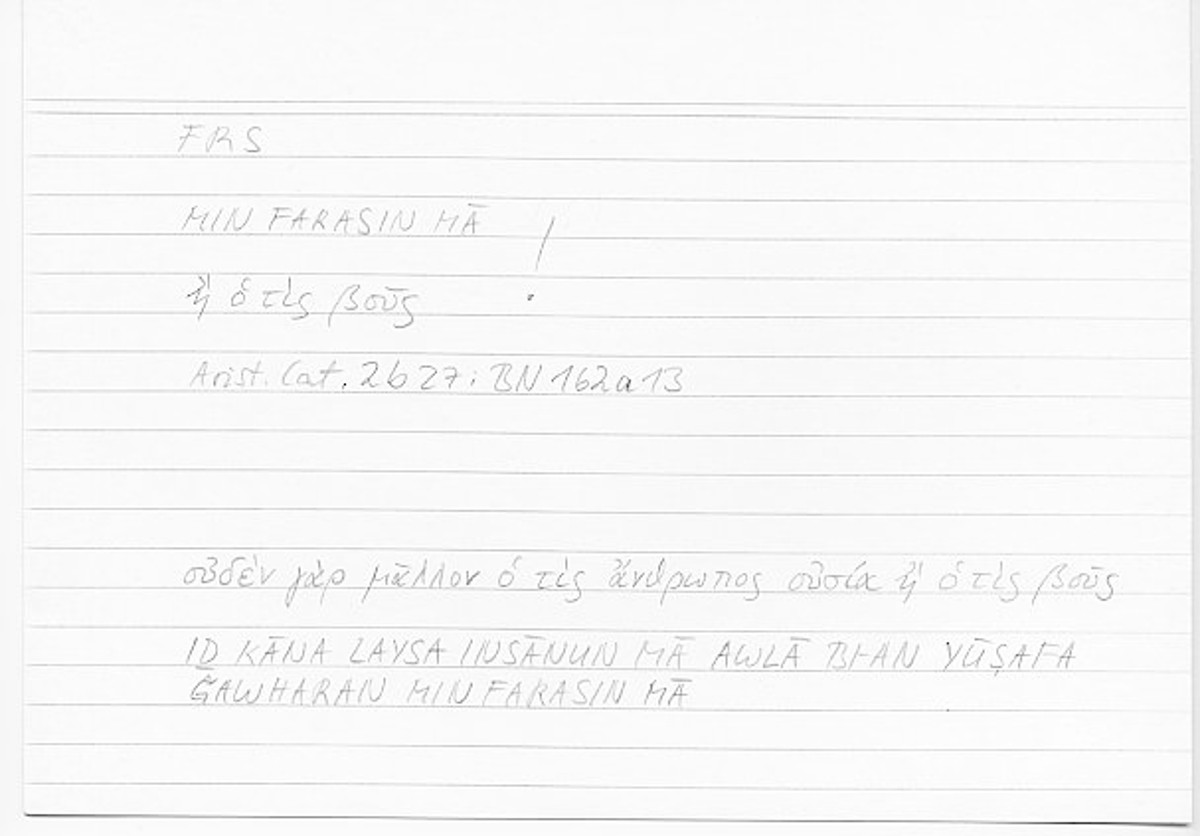 FRS
MIN FARASIN MĀ !
ἢ ὁ τὶς βοῦς
Arist. Cat. 2b27; BN 162a13
οὐδὲν γὰρ μᾶλλον ὁ τὶς ἄνθρωπος οὐσία ἢ ὁ τὶς βοῦς
IḎ KĀNA LAYSA INSĀNUN MĀ AWLĀ BI-AN YŪṢAFA
ǦAWHARAN MIN FARASIN MĀ